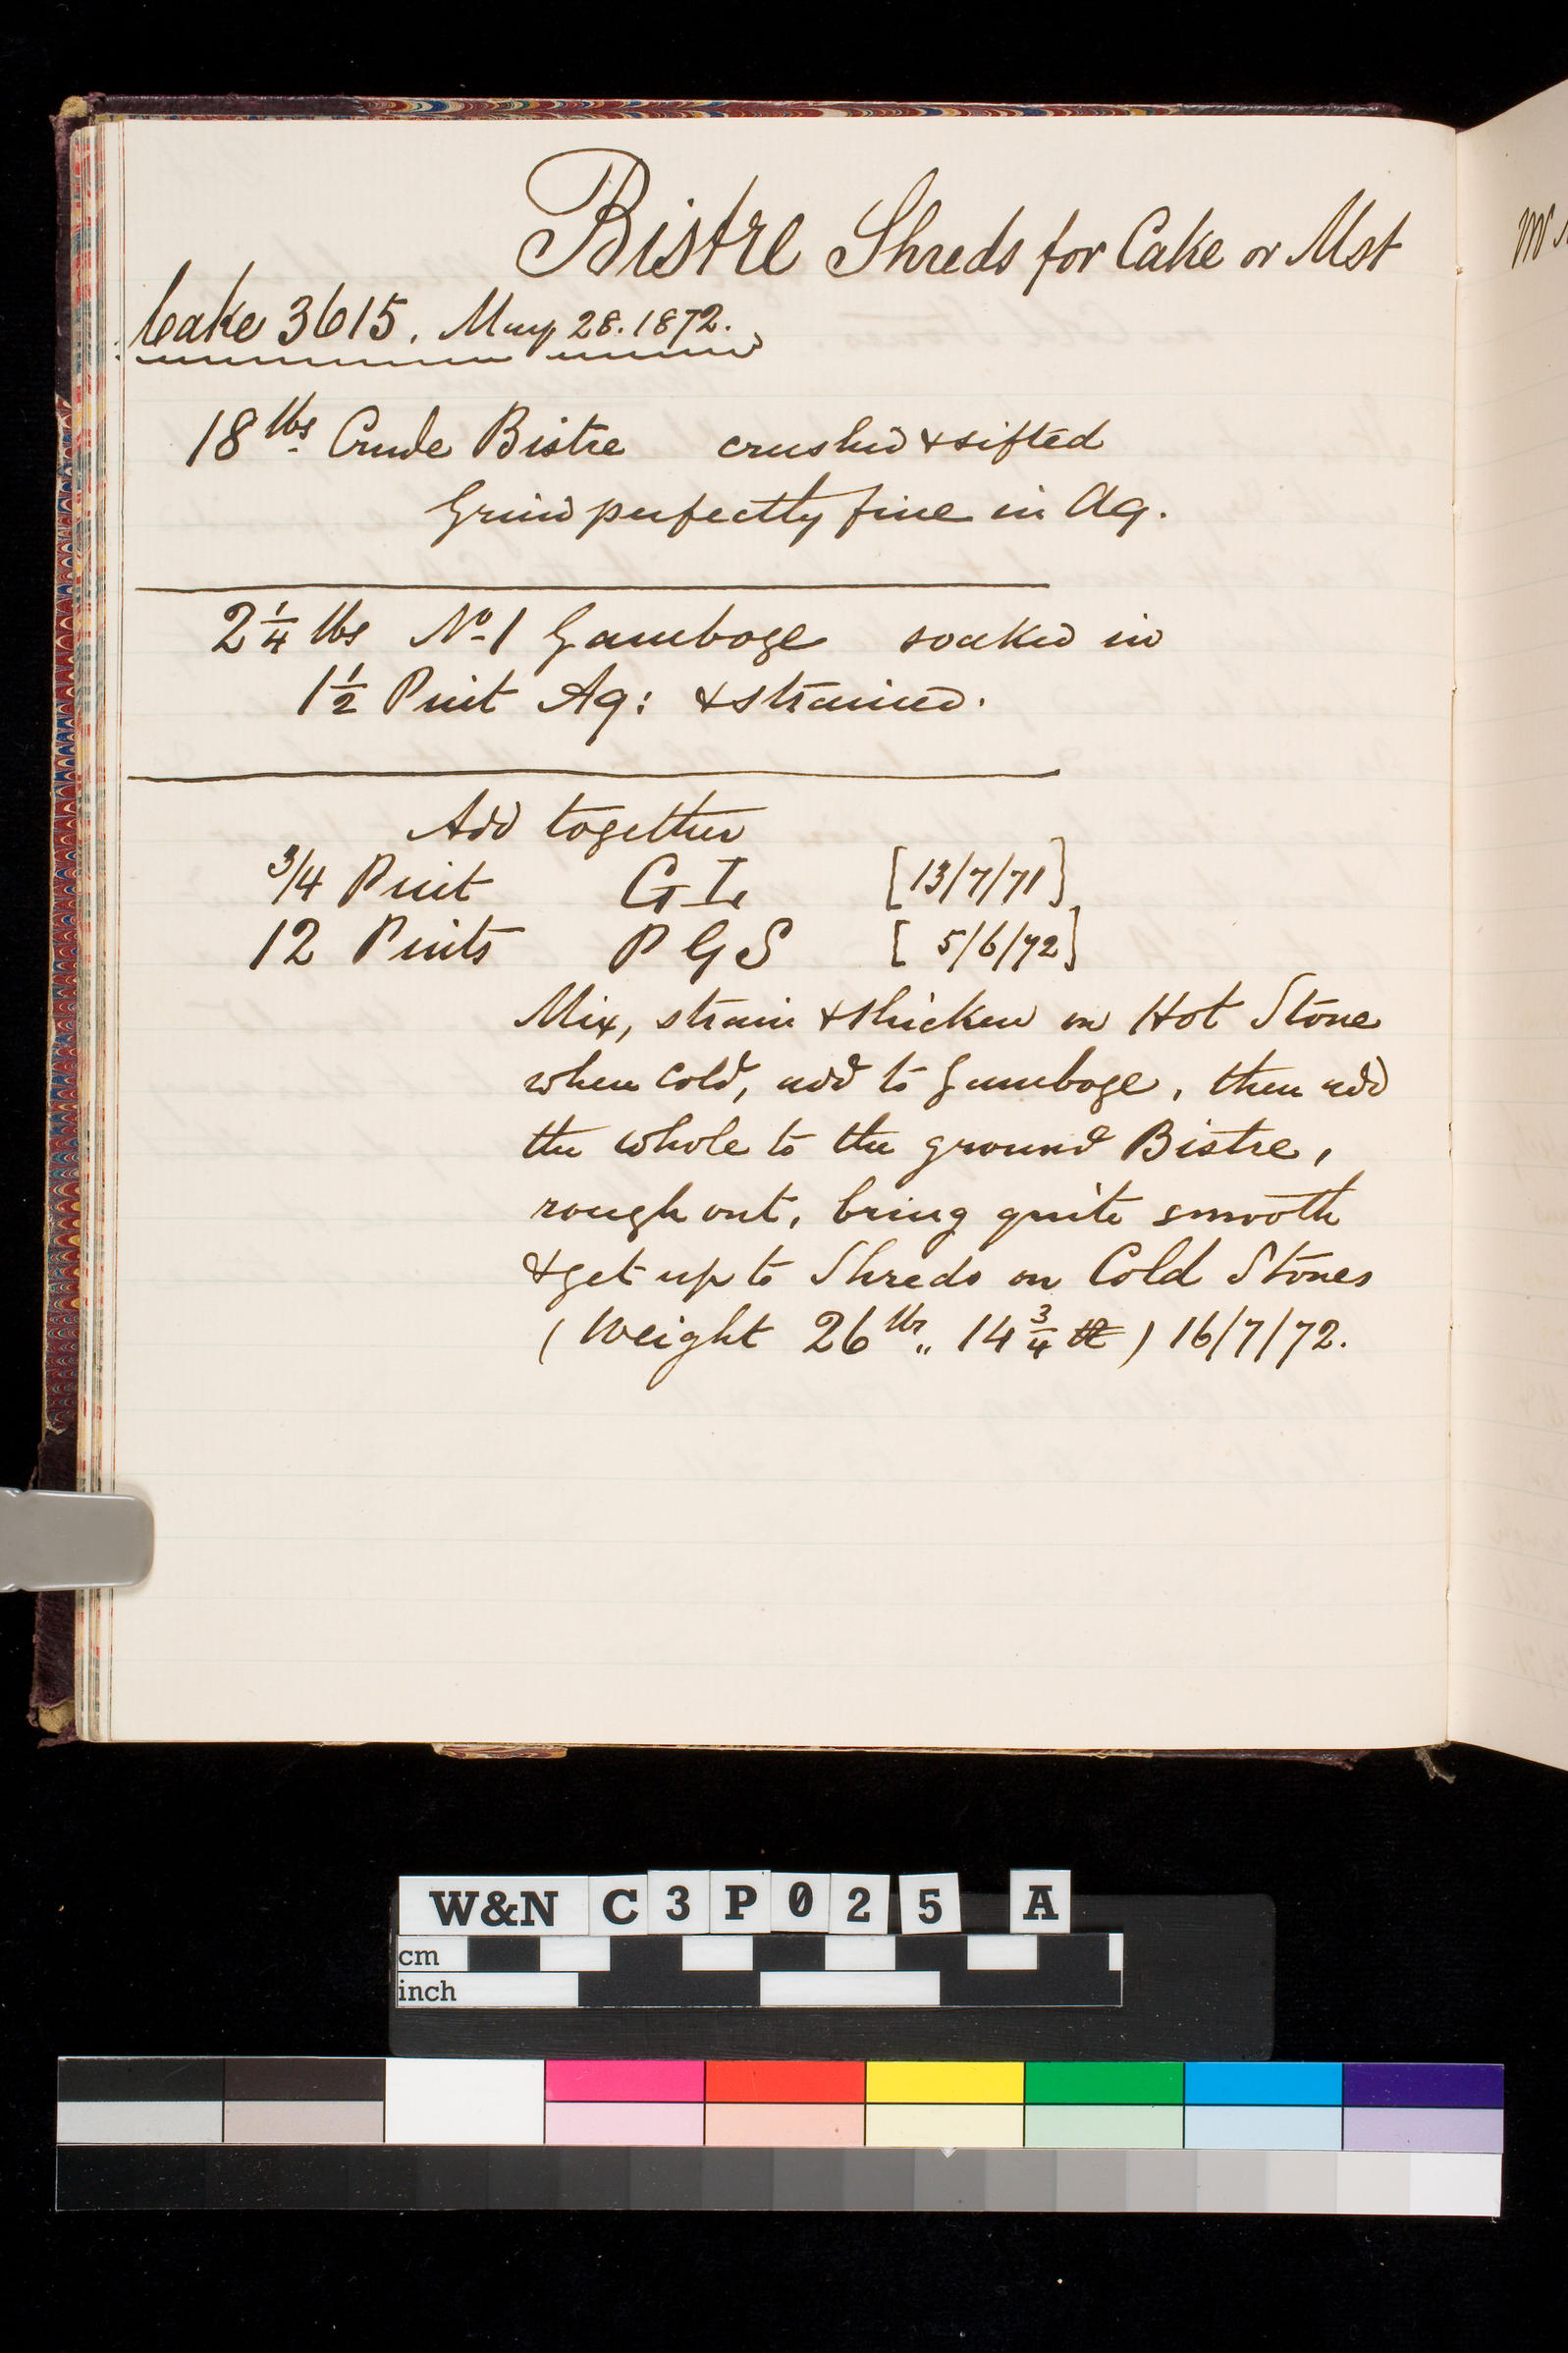 Bistre Shreds for Cake or Mst
Cake 3615. May 28. 1872.
18 lbs Crude Bistre crushed & sifted
Grind perfectly fine in Aq.
2 1/4 lbs No 1 Gamboge soaked in
1 1/2 Pint Aq: & strained.
Add together
3/4 Pint G I. [13/7/71]
12 Pints P G S [5/6/72]
Mix, strain & thicken on Hot Stone
when cold, add to Gamboge, then add
the whole to the ground Bistre,
rough out, bring quite smooth
& get up to Shreds on Cold Stones
(Weight 26 lbs,, 14 3/4) 16/7/72.
W&N C3P025 A
cm
inch